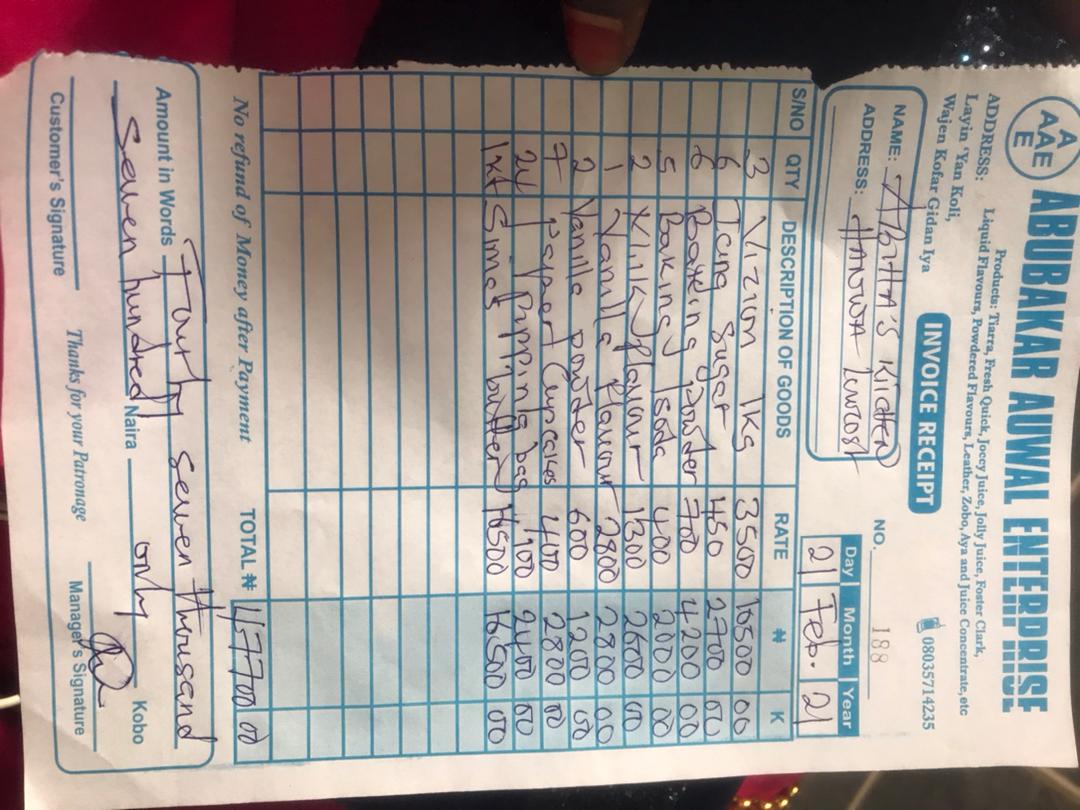 A
AA
AAE
E
ABUBAKAR AUWAL ENTERPRISE
Products: Tiarra, Fresh Quick, Joccy Juice, Jolly Juice, Foster Clark,
Liquid Flavours, Powdered Flavours, Leather, Zobo, Aya and Juice Concentrate, etc
ADDRESS:
Layin 'Yan Koli,
Wajen Kofar Gidan Iya
08035714235
INVOICE RECEIPT
NO. 188
NAME: KITCHEN
ADDRESS: HANWA LOWCOST
Day Month Year
21 Feb. 21
S/NO QTY DESCRIPTION OF GOODS RATE ₦ K
3 Vizion 1kg 3500 10500 00
6 Icing Sugar 450 2700 00
6 Baking Powder 700 4200 00
5 Baking Soda 400 2000 00
2 Milk flavour 1300 2600 00
1 Vanilla flavour 2800 2800 00
2 Vanilla powder 600 1200 00
7 Paper Cupcakes 400 2800 00
24 Pipping bag 100 2400 00
1xt Simas butter 16500 16500 00
No refund of Money after Payment TOTAL ₦ 47700 00
Amount in Words Fourty seven thousand
Seven hundred Naira only Kobo
Customer's Signature Thanks for your Patronage Manager's Signature